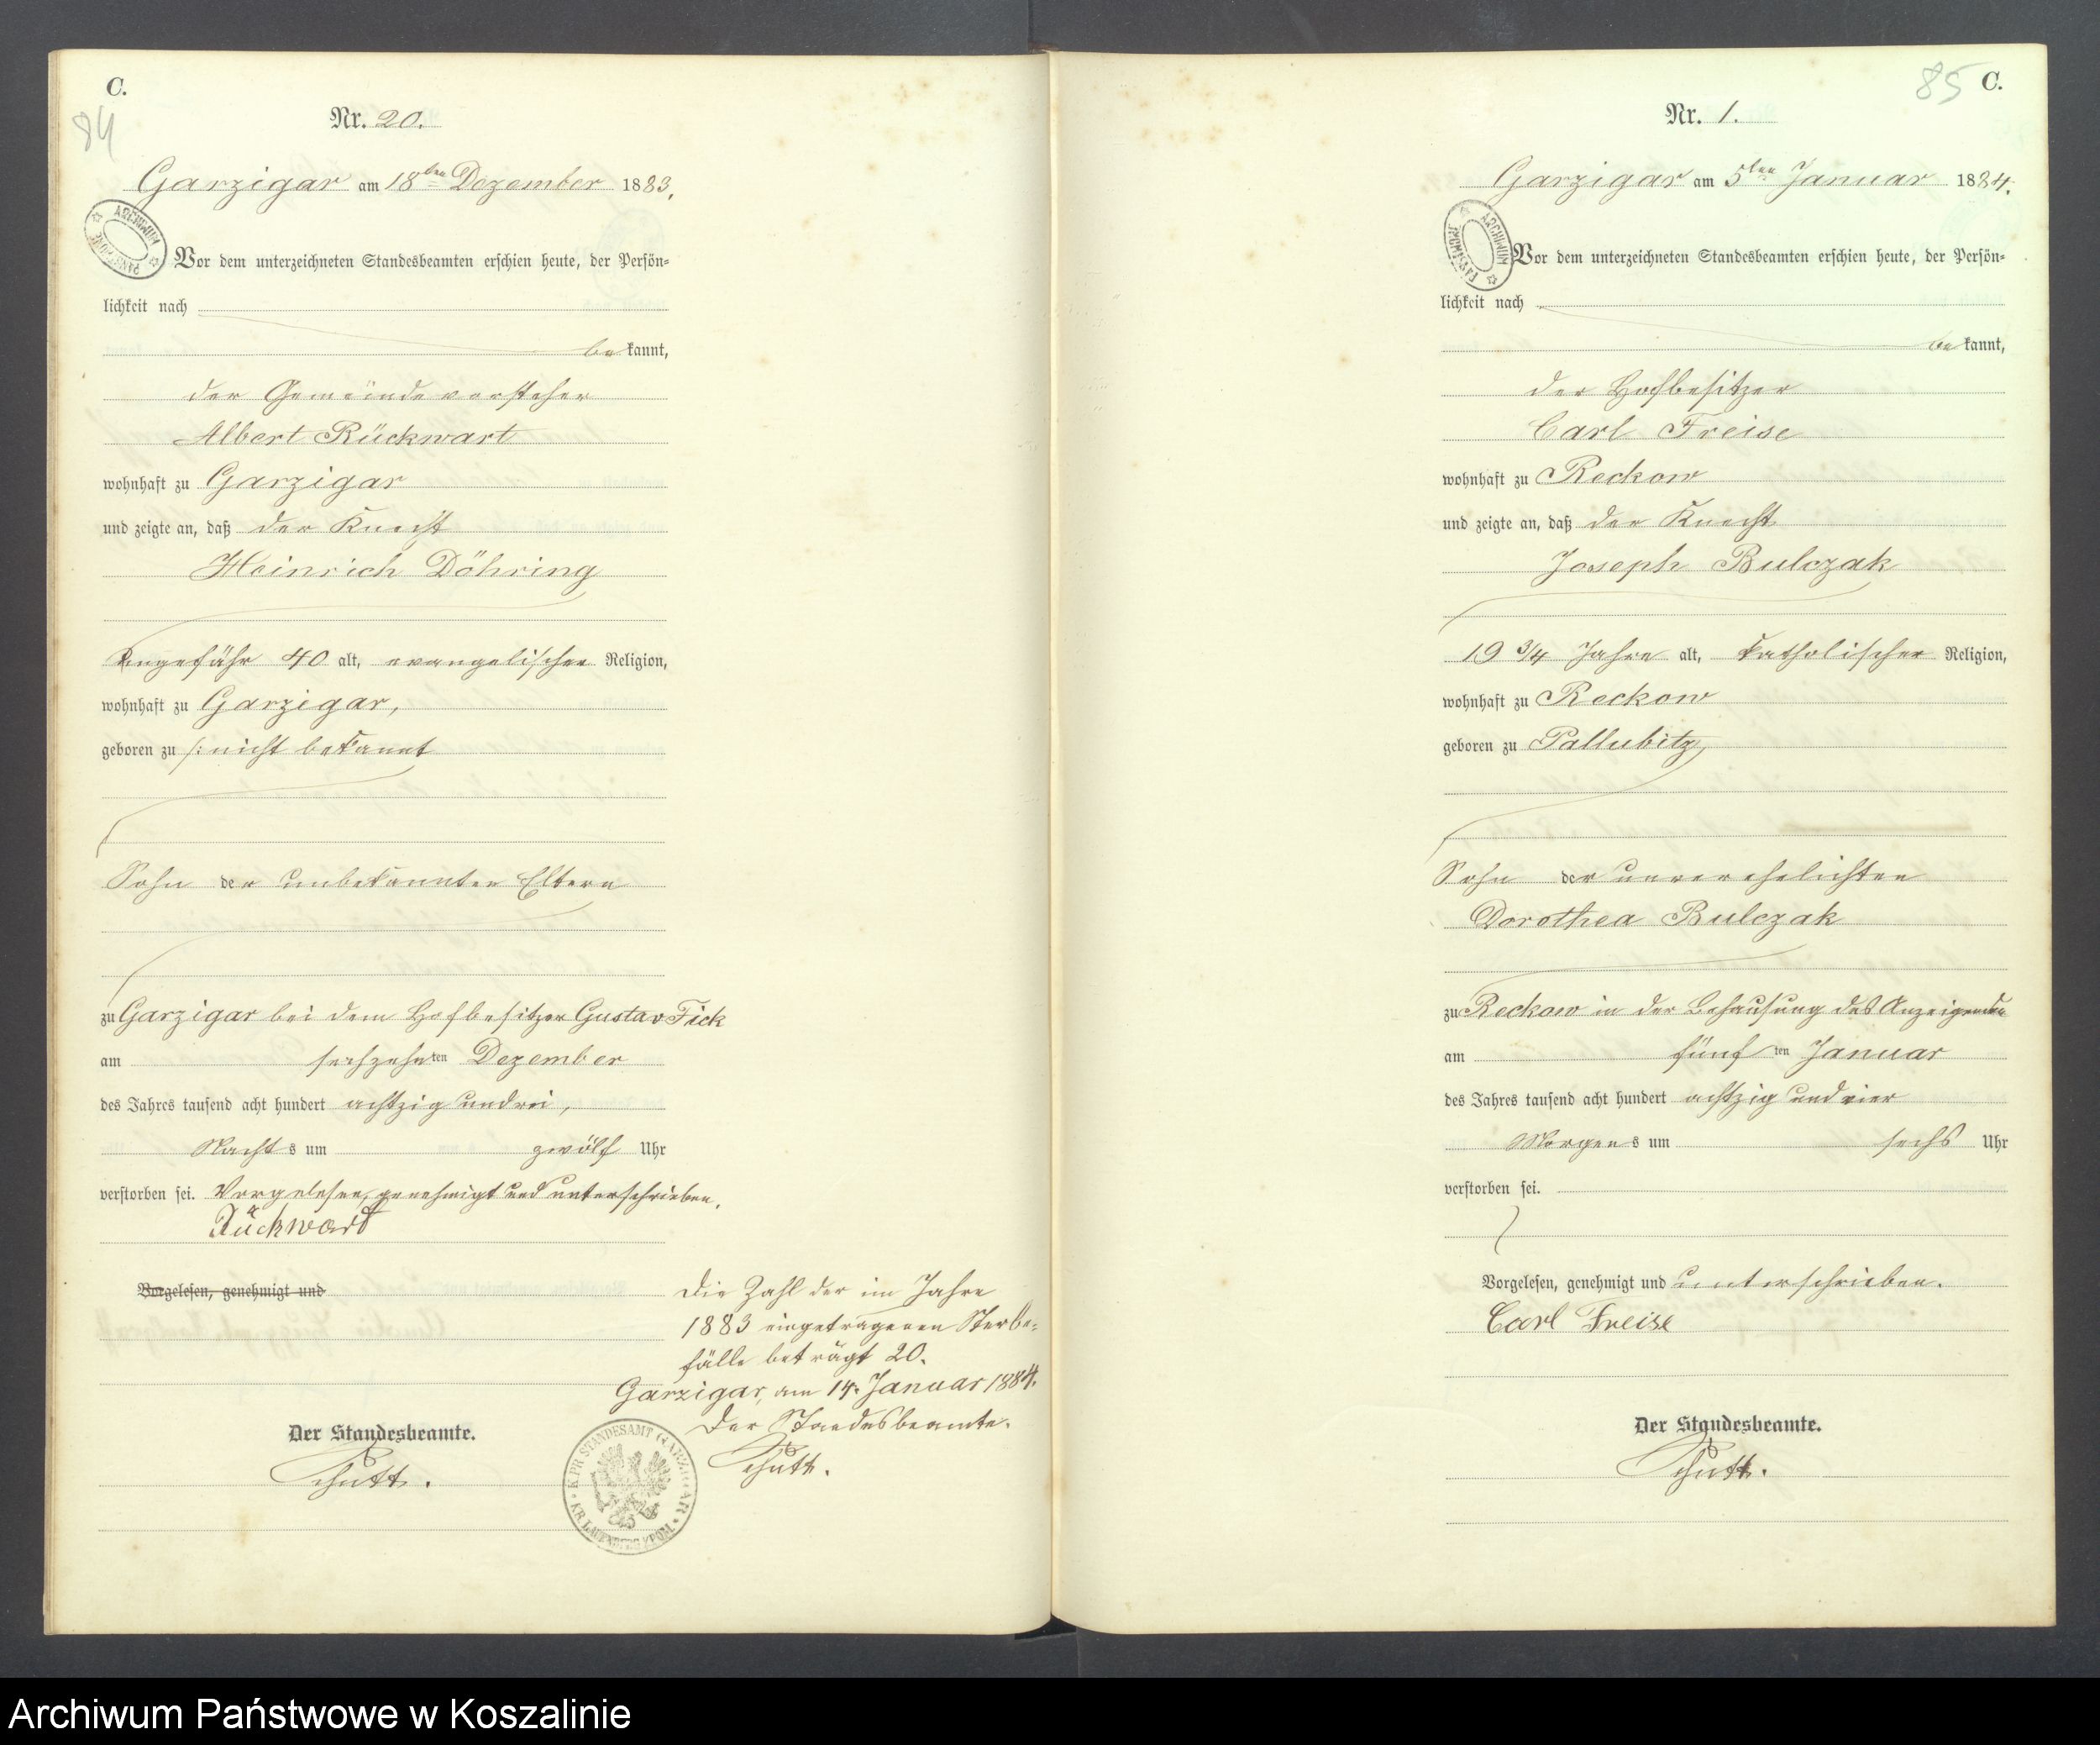 C.
84
Nr. 20.
Garzigar am 18ten Dezember 1883.
Vor dem unterzeichneten Standesbeamten erschien heute, der Persön-
lichkeit nach
bekannt,
der Gemeindevorsteher
Albert Rückwart
wohnhaft zu Garzigar
und zeigte an, daß der Knecht
Heinrich Döhring
ungefähr 40 alt, evangelischer Religion,
wohnhaft zu Garzigar,
geboren zu /: nicht bekannt
Sohn der unbekannten Eltern
zu Garzigar bei dem Hofbesitzer Gustav Fick
am sechzehnten Dezember
des Jahres tausend acht hundert achtzig und drei,
Nachts um zwölf Uhr
verstorben sei. Vorgelesen, genehmigt und unterschrieben.
Rückwart
Vorgelesen, genehmigt und
Die Zahl der im Jahre
1883 eingetragenen Sterbe-
fälle beträgt 20.
Garzigar, am 14. Januar 1884.
Der Standesbeamte.
Schutt.
Der Standesbeamte.
Schutt.
K. PR. STANDESAMT GARZIGAR
KR. LAUENBURG I/POM.
ARCHIWUM PAŃSTWOWE
85
C.
Nr. 1.
Garzigar am 5ten Januar 1884.
ARCHIWUM PAŃSTWOWE
Vor dem unterzeichneten Standesbeamten erschien heute, der Persön-
lichkeit nach
bekannt,
der Hofbesitzer
Carl Freise
wohnhaft zu Reckow
und zeigte an, daß der Knecht
Joseph Bulczak
19 3/4 Jahre alt, katholischer Religion,
wohnhaft zu Reckow
geboren zu Pallubitz,
Sohn der unverehelichten
Dorothea Bulczak
zu Reckow in der Behausung des Anzeigenden
am fünften Januar
des Jahres tausend acht hundert achtzig und vier
Morgens um sechs Uhr
verstorben sei.
Vorgelesen, genehmigt und unterschrieben.
Carl Freise
Der Standesbeamte.
Schutt.
Archiwum Państwowe w Koszalinie